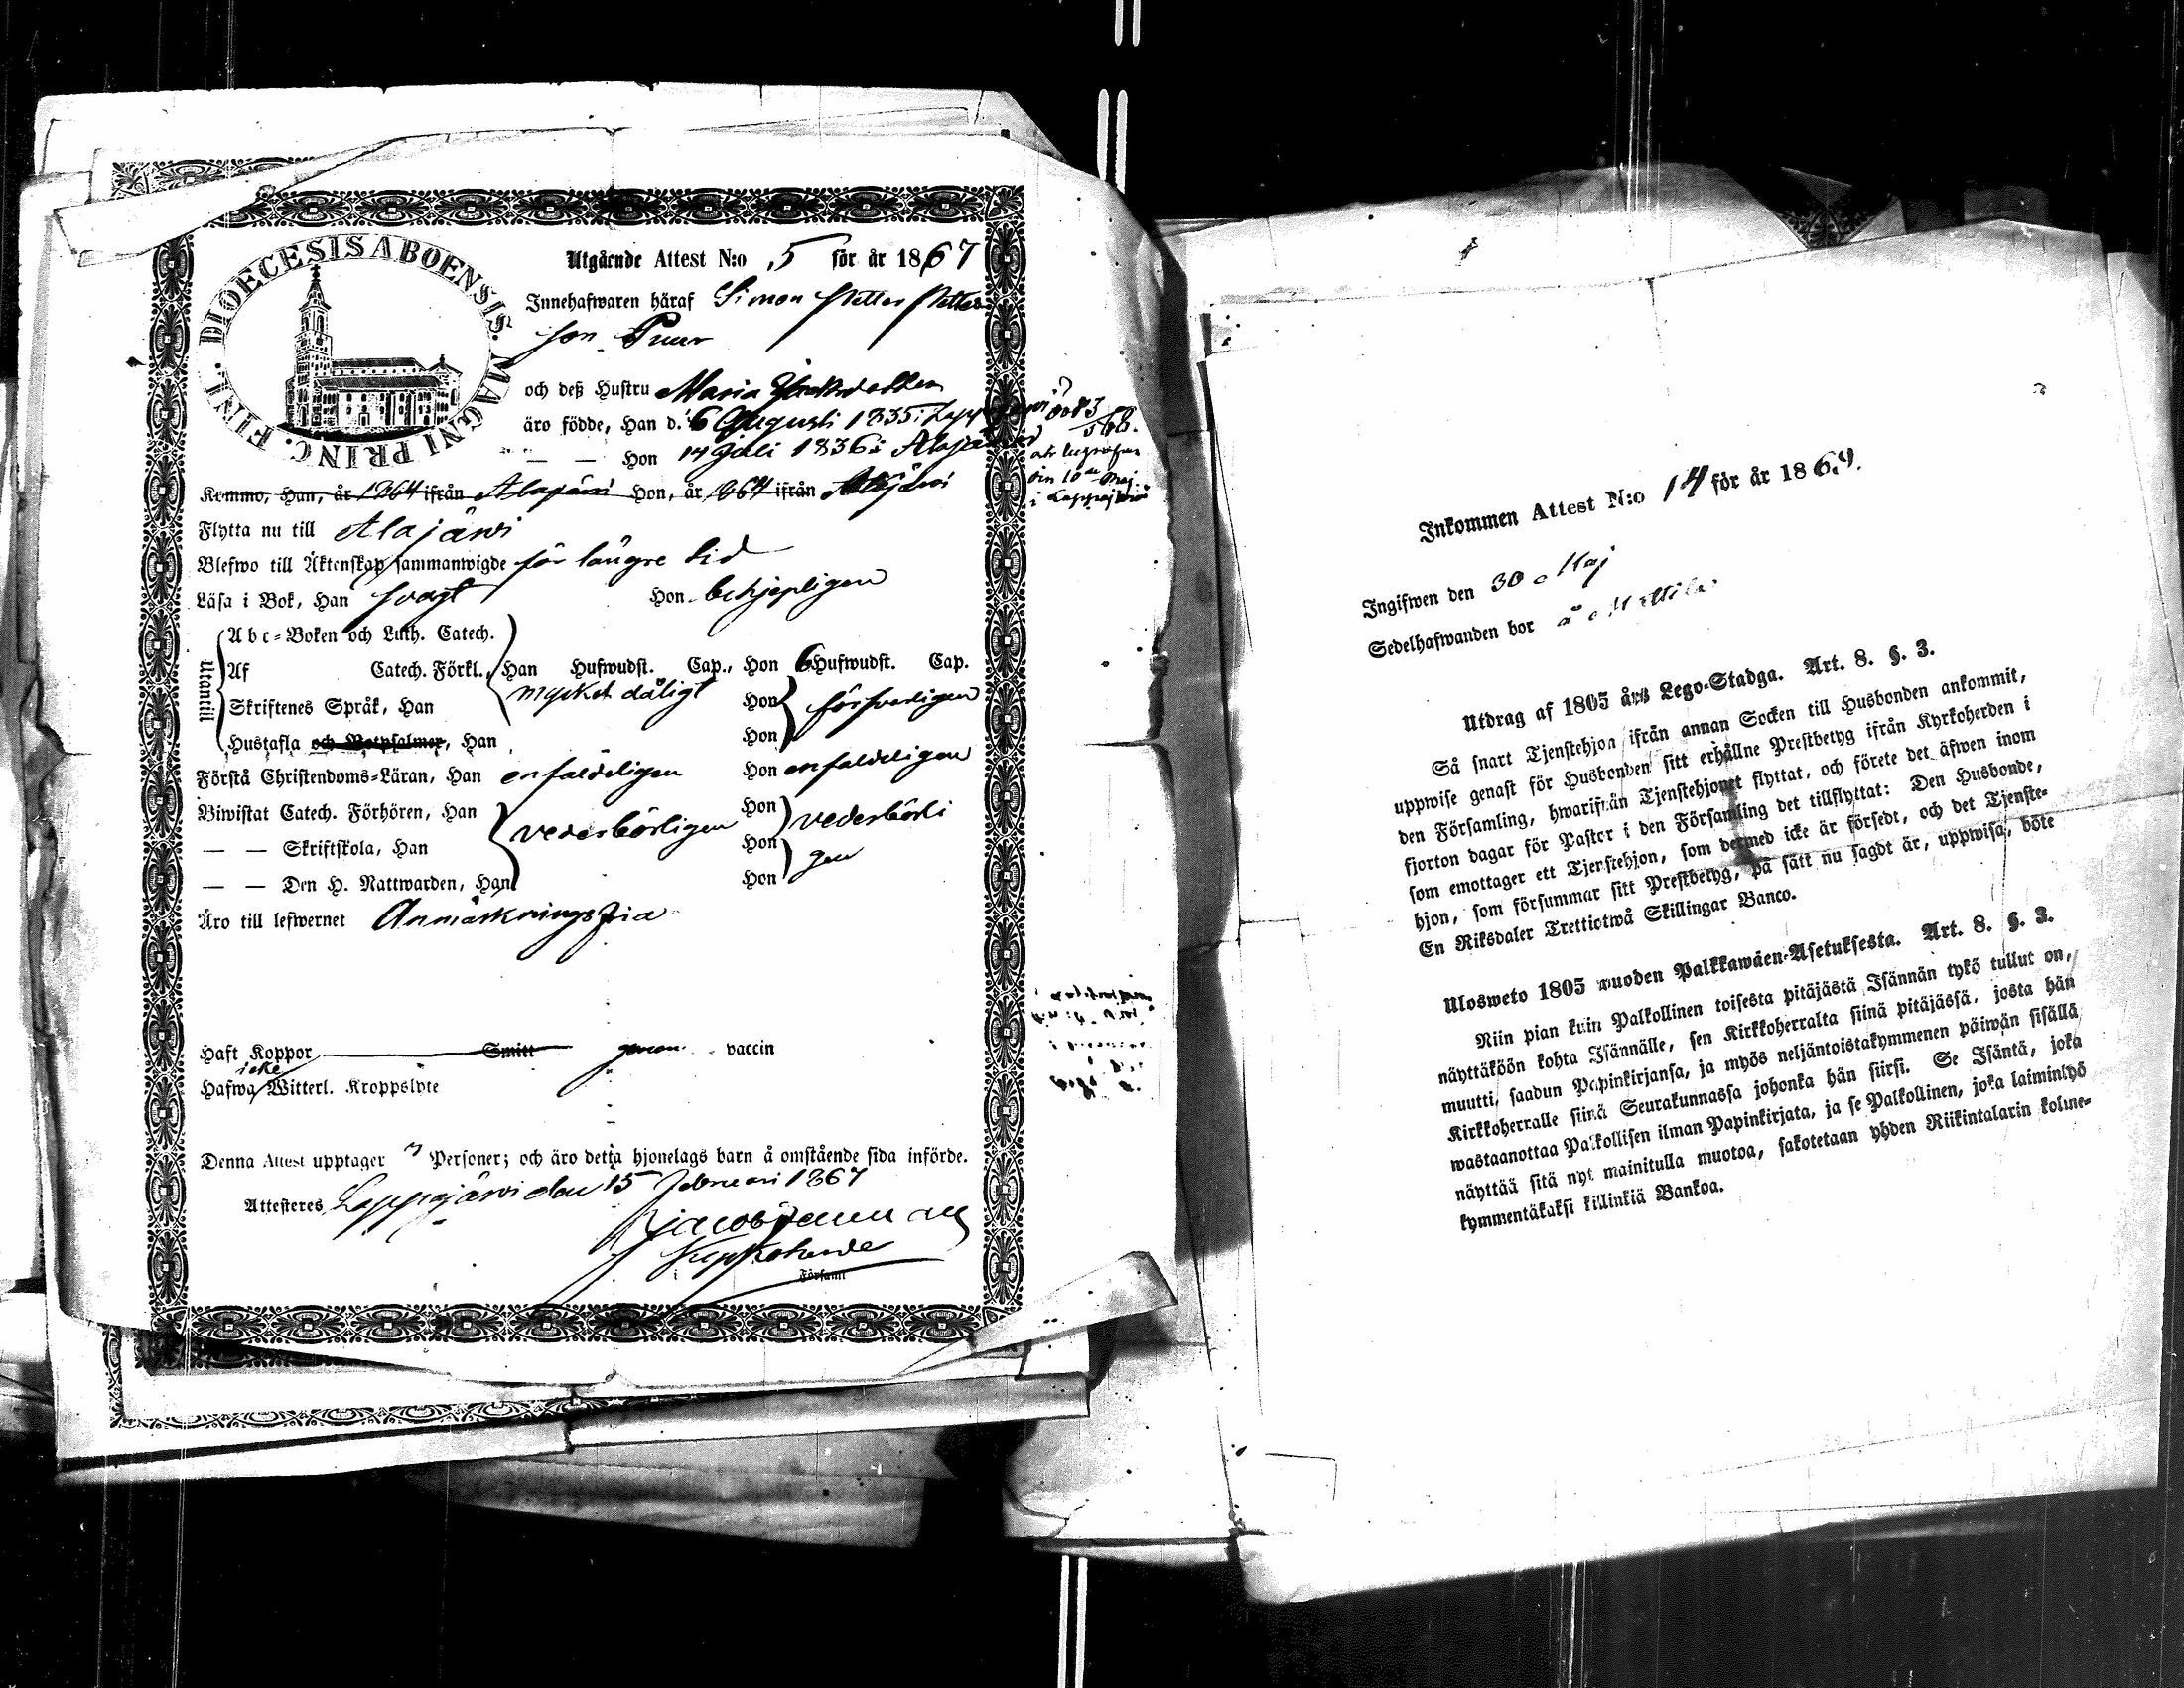 DIOECESIS ABOENSIS. MAGNI PRINC. FINL.
Utgående Attest N:o 5 för år 1867
Innehafwaren häraf Simon Petter Petters
son Puur
och deß Hustru Maria
äro födde, Han d. 6 Augusti 1835 i Lappajärvi
— — Hon 14 Juli 1836 i Alajärvi
Kommo, Han, år 1864 ifrån Alajärvi Hon, år 1864 ifrån Alajärvi
Flytta nu till Alajärvi
Blefwo till Äktenskap sammanwigde för längre tid
Läsa i Bok, Han svagt Hon behjepligen
Utantill
Abc-Boken och Luth. Catech.
Af Catech. Förkl., Han Hufwudst. Cap., Hon 6 Hufwudst. Cap.
mycket dåligt
Skriftenes Språk, Han Hon försvarligen
Hustafla och Botpsalmer, Han Hon
Förstå Christendoms-Läran, Han enfaldeligen Hon enfaldeligen
Biwistat Catech. Förhören, Han vederbörligen Hon vederbörli
— — Skriftskola, Han Hon gen
— — Den H. Nattwarden, Han Hon
Äro till lefwernet Anmärkningsfria
Haft Koppor Smitt genom vaccin
icke
Hafwa Witterl. Kroppslyte
Denna Attest upptager Personer; och äro detta hjonelags barn å omstående sida införde.
Attesteres Lappajärvi den 15 Februari 1867
Kyrkoherde
i Församl
den 10de Maj
i Lappajärvi
Inkommen Attest N:o 14 för år 1869.
Ingifwen den 30 Maj
Sedelhafwanden bor å
Utdrag af 1805 års Lego-Stadga. Art. 8. §. 3.
Så snart Tjenstehjon ifrån annan Socken till Husbonden ankommit,
uppwise genast för Husbonden sitt erhållne Prestbetyg ifrån Kyrkoherden i
den Församling, hwarifrån Tjenstehjonet flyttat, och förete det äfwen inom
fjorton dagar för Pastor i den Församling det tillflyttat: Den Husbonde,
som emottager ett Tjenstehjon, som dermed icke är försedt, och det Tjenste-
hjon, som försummar sitt Prestbetyg, på sätt nu sagdt är, uppwisa, böte
En Riksdaler Trettiotwå Skillingar Banco.
Ulosweto 1805 wuoden Palkkawäen-Asetuksesta. Art. 8. §. 3.
Niin pian kuin Palkollinen toisesta pitäjästä Isännän tykö tullut on,
näyttäköön kohta Isännälle, sen Kirkkoherralta siinä pitäjässä, josta hän
muutti, saadun Papinkirjansa, ja myös neljäntoistakymmenen päiwän sisällä
Kirkkoherralle siinä Seurakunnassa johonka hän siirsi. Se Isäntä, joka
wastaanottaa Palkollisen ilman Papinkirjata, ja se Palkollinen, joka laiminlyö
näyttää sitä nyt mainitulla muotoa, sakotetaan yhden Riikintalarin kolme-
kymmentäkaksi killinkiä Bankoa.